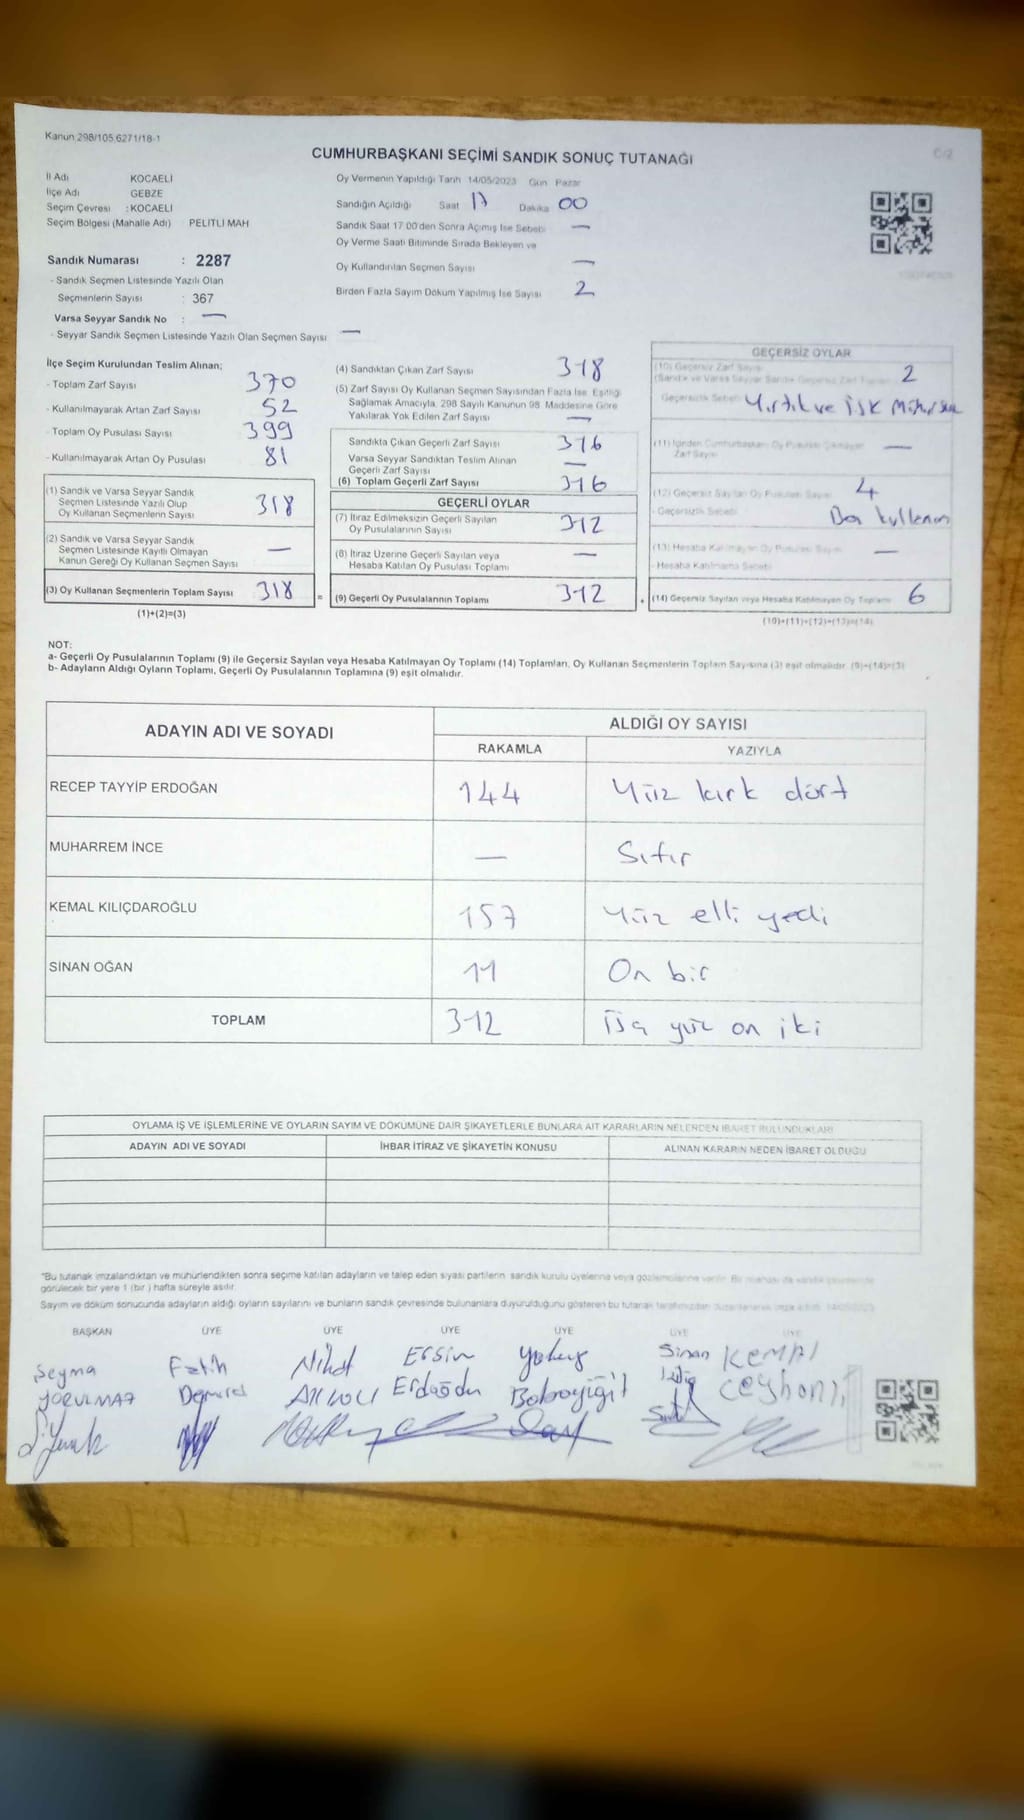 Kanun 298/105 6271/18-1
CUMHURBAŞKANI SEÇİMİ SANDIK SONUÇ TUTANAĞI
C/2
İl Adı KOCAELİ
İlçe Adı GEBZE
Seçim Çevresi : KOCAELİ
Seçim Bölgesi (Mahalle Adı) PELİTLİ MAH
Sandık Numarası : 2287
- Sandık Seçmen Listesinde Yazılı Olan
Seçmenlerin Sayısı : 367
Varsa Seyyar Sandık No : —
- Seyyar Sandık Seçmen Listesinde Yazılı Olan Seçmen Sayısı —
Oy Vermenin Yapıldığı Tarih 14/05/2023 Gün Pazar
Sandığın Açıldığı Saat 17 Dakika 00
Sandık Saat 17 00'den Sonra Açılmış İse Sebebi —
Oy Verme Saati Bitiminde Sırada Bekleyen ve
Oy Kullandırılan Seçmen Sayısı —
Birden Fazla Sayım Döküm Yapılmış İse Sayısı 2
İlçe Seçim Kurulundan Teslim Alınan;
- Toplam Zarf Sayısı 370
- Kullanılmayarak Artan Zarf Sayısı 52
- Toplam Oy Pusulası Sayısı 399
- Kullanılmayarak Artan Oy Pusulası 81
(1) Sandık ve Varsa Seyyar Sandık
Seçmen Listesinde Yazılı Olup
Oy Kullanan Seçmenlerin Sayısı 318
(2) Sandık ve Varsa Seyyar Sandık
Seçmen Listesinde Kayıtlı Olmayan
Kanun Gereği Oy Kullanan Seçmen Sayısı —
(3) Oy Kullanan Seçmenlerin Toplam Sayısı 318 =
(1)+(2)=(3)
(4) Sandıktan Çıkan Zarf Sayısı 318
(5) Zarf Sayısı Oy Kullanan Seçmen Sayısından Fazla İse, Eşitliği
Sağlamak Amacıyla, 298 Sayılı Kanunun 98. Maddesine Göre
Yakılarak Yok Edilen Zarf Sayısı —
Sandıkta Çıkan Geçerli Zarf Sayısı 316
Varsa Seyyar Sandıktan Teslim Alınan
Geçerli Zarf Sayısı —
(6) Toplam Geçerli Zarf Sayısı 316
GEÇERLİ OYLAR
(7) İtiraz Edilmeksizin Geçerli Sayılan
Oy Pusulalarının Sayısı 312
(8) İtiraz Üzerine Geçerli Sayılan veya
Hesaba Katılan Oy Pusulası Toplamı —
(9) Geçerli Oy Pusulalarının Toplamı 312
GEÇERSİZ OYLAR
(10) Geçersiz Zarf Sayısı 2
(Sandık ve Varsa Seyyar Sandık Geçersiz Zarf Toplamı)
Geçersizlik Sebebi Yırtık ve
(11) İçinden Cumhurbaşkanı Oy Pusulası Çıkmayan
Zarf Sayısı —
(12) Geçersiz Sayılan Oy Pusulası Sayısı 4
- Geçersizlik Sebebi kullanım
(13) Hesaba Katılmayan Oy Pusulası Sayısı —
- Hesaba Katılmama Sebebi
(14) Geçersiz Sayılan veya Hesaba Katılmayan Oy Toplamı 6
(10)+(11)+(12)+(13)=(14)
NOT:
a- Geçerli Oy Pusulalarının Toplamı (9) ile Geçersiz Sayılan veya Hesaba Katılmayan Oy Toplamı (14) Toplamları, Oy Kullanan Seçmenlerin Toplam Sayısına (3) eşit olmalıdır. (9)+(14)=(3)
b- Adayların Aldığı Oyların Toplamı, Geçerli Oy Pusulalarının Toplamına (9) eşit olmalıdır.
ADAYIN ADI VE SOYADI ALDIĞI OY SAYISI
RAKAMLA YAZIYLA
RECEP TAYYİP ERDOĞAN 144 Yüz kırk dört
MUHARREM İNCE — Sıfır
KEMAL KILIÇDAROĞLU 157 Yüz elli yedi
SİNAN OĞAN 11 On bir
TOPLAM 312 yüz on iki
OYLAMA İŞ VE İŞLEMLERİNE VE OYLARIN SAYIM VE DÖKÜMÜNE DAİR ŞİKAYETLERLE BUNLARA AİT KARARLARIN NELERDEN İBARET BULUNDUKLARI
ADAYIN ADI VE SOYADI İHBAR İTİRAZ VE ŞİKAYETİN KONUSU ALINAN KARARIN NEDEN İBARET OLDUĞU
*Bu tutanak imzalandıktan ve mühürlendikten sonra seçime katılan adayların ve talep eden siyasi partilerin sandık kurulu üyelerine veya gözlemcilerine verilir. Bu
görülecek bir yere 1 (bir ) hafta süreyle asılır.
Sayım ve döküm sonucunda adayların aldığı oyların sayılarını ve bunların sandık çevresinde bulunanlara duyurulduğunu gösteren bu tutanak tarafımızdan düzenlenerek imza edildi. 14/05/2023
BAŞKAN ÜYE ÜYE ÜYE ÜYE ÜYE ÜYE
Şeyma Fatih Nihat Ersin Sinan KEMAL
YORULMAZ Demirel Erdoğdu Babayiğit